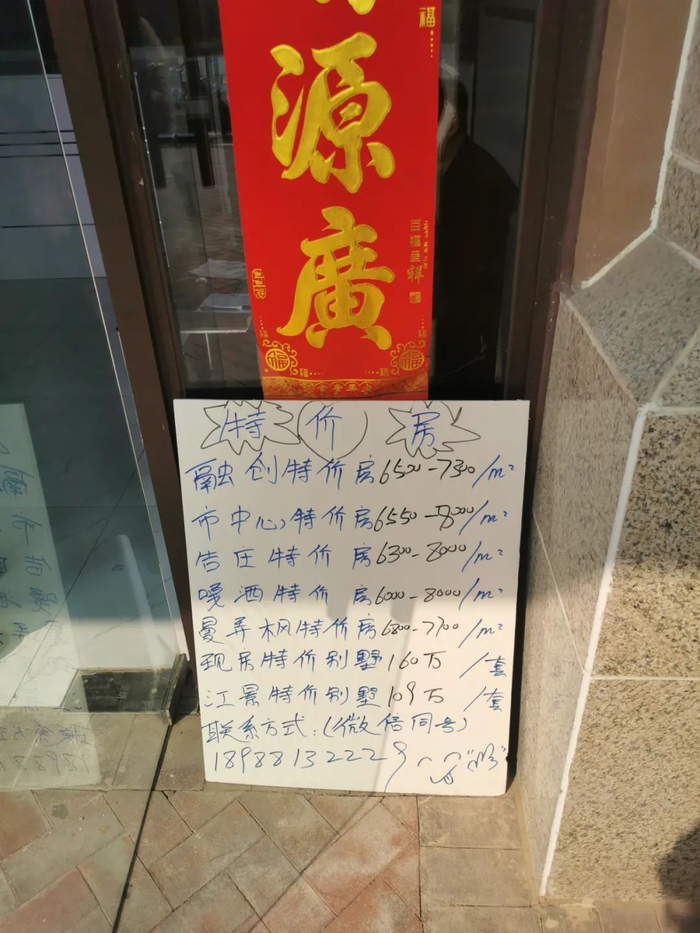 福
源
廣
百福呈祥
福
福
特价房
融创特价房6500-7300/m²
市中心特价房6550-8000/m²
告庄特价房6300-8000/m²
嘎洒特价房6000-8000/m²
曼弄枫特价房6800-7700/m²
现房特价别墅160万/套
江景特价别墅109万/套
联系方式:(微信同号)
18988132229